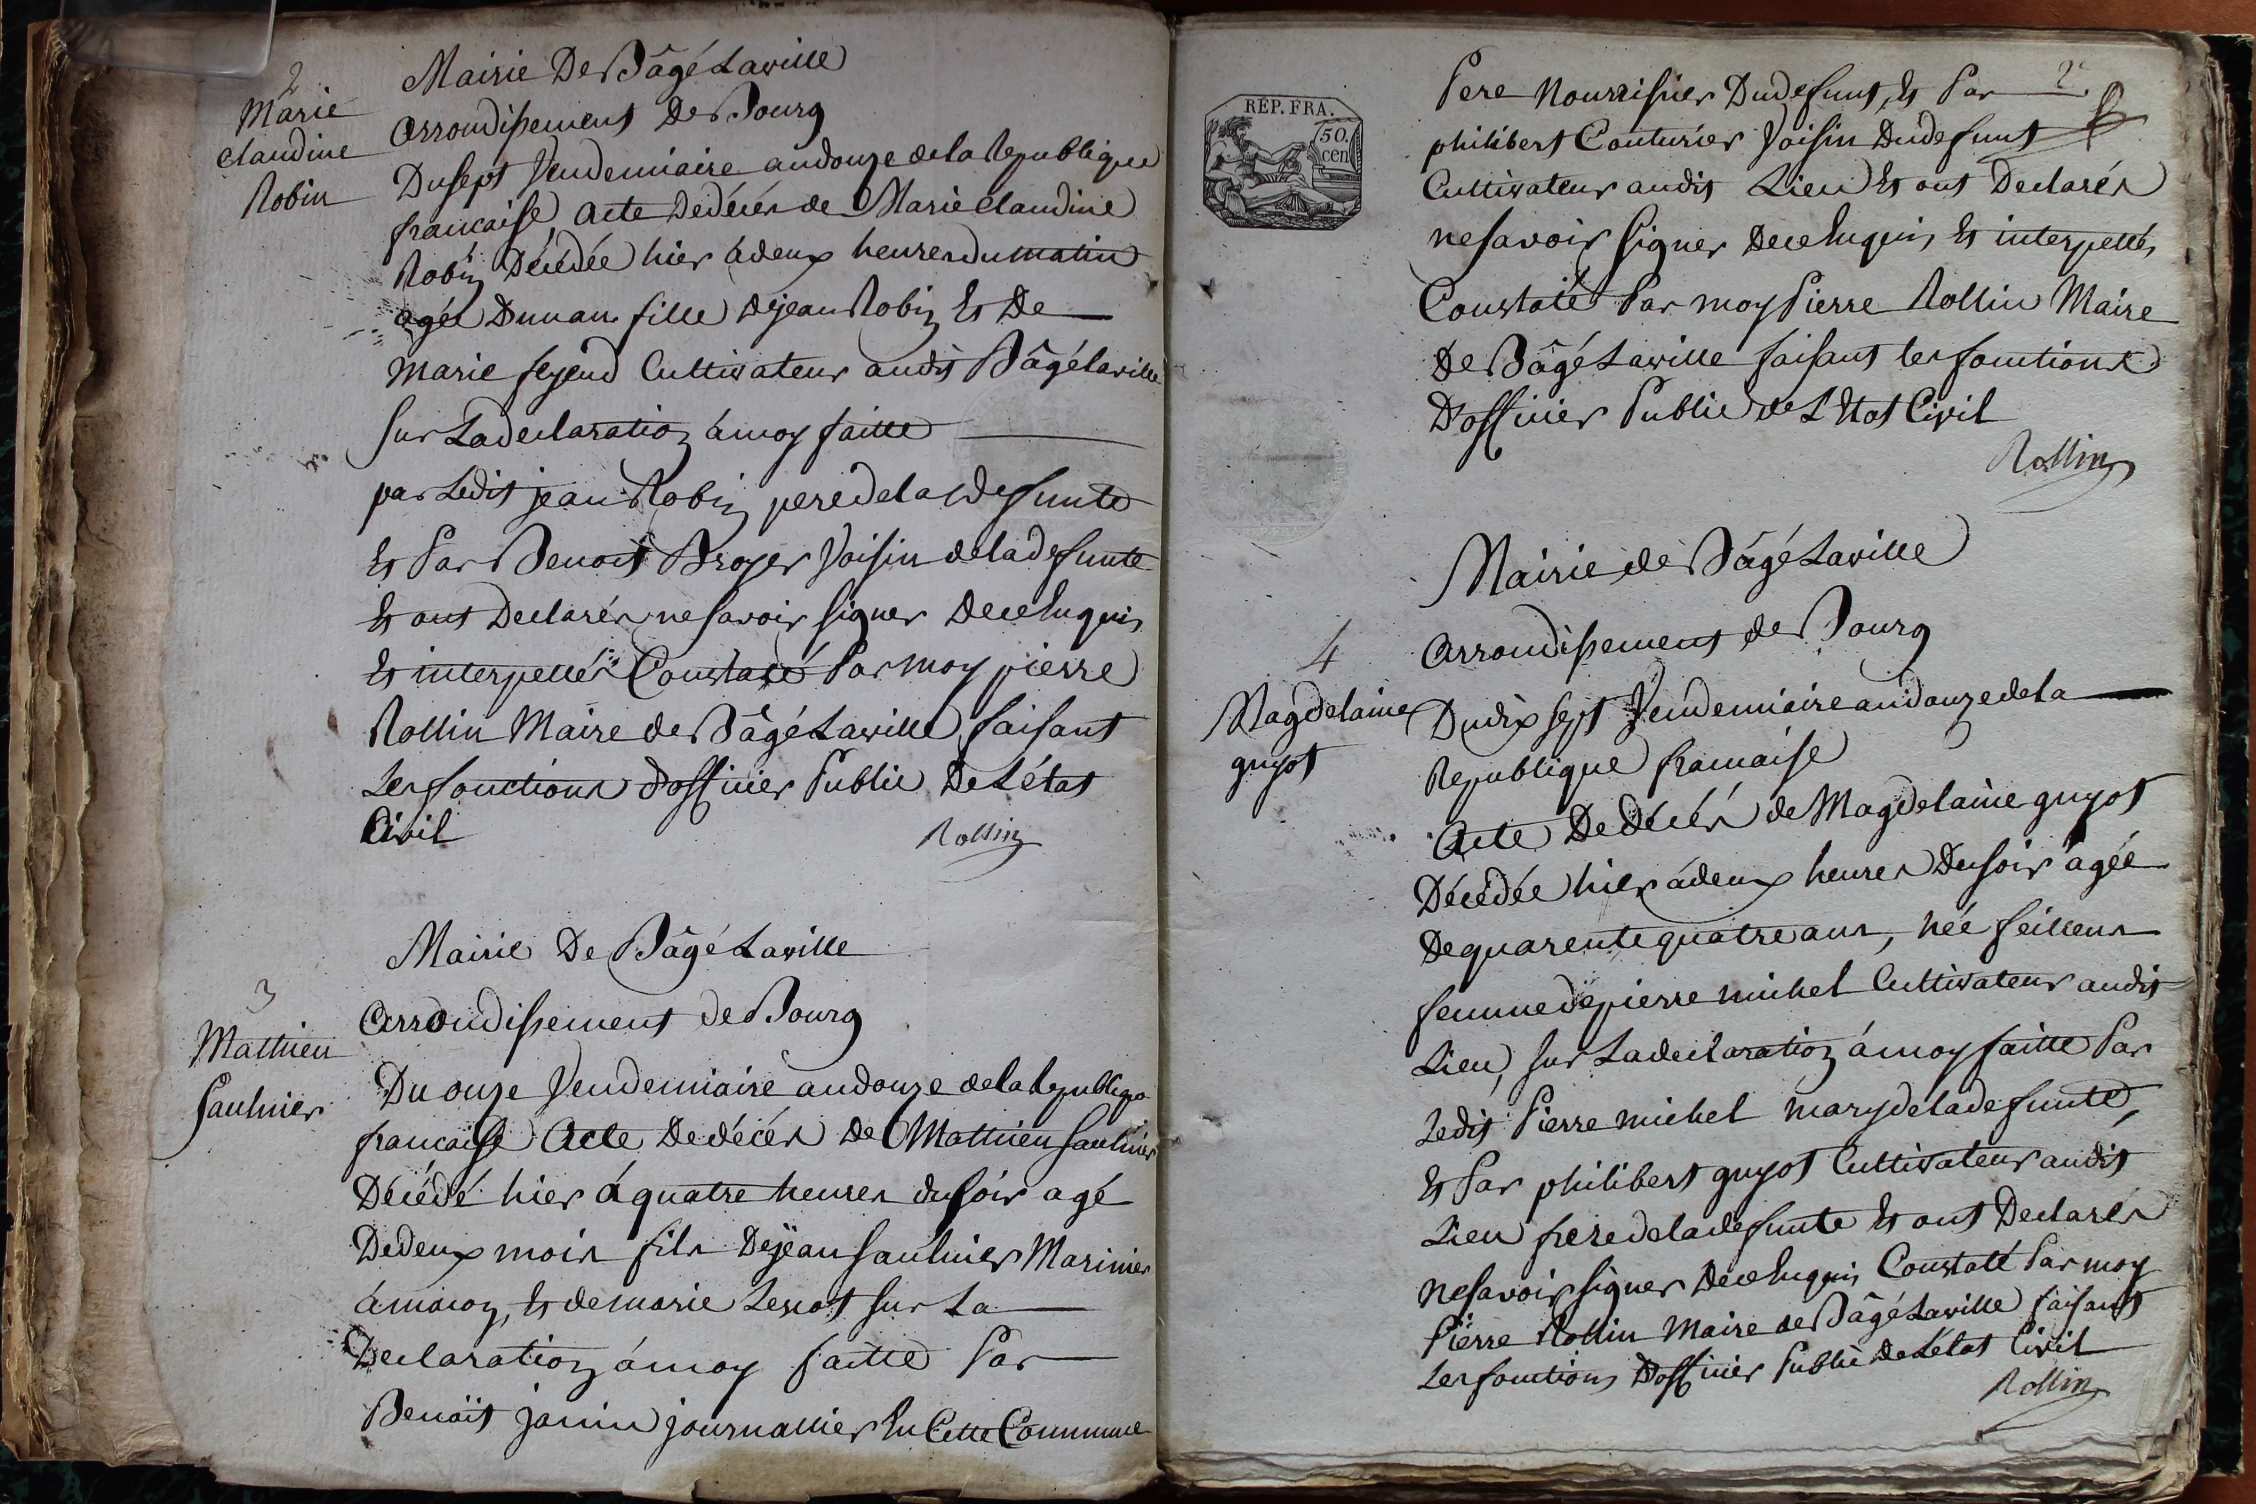 2
Marie
claudine
Robin
Mairie De Bâgé Laville
Arrondissement De Bourg
Du sept Vendemiaire an douze de la Republique
francaise, Acte De décés de Marie Claudine
Robin Décédée hier á deux heures du matin
agée D'un an fille De jean Robin Et De
Marie feyeud Cultivateur audit Bâgé laville
Sur La declaration á moy faitte
par Ledit jean Robin pere de la defunte
Et Par Benoit Broyer Voisin de la defunte
Et ont Declarés ne savoir signer De ce Enquis
Et interpellés Constaté Par moy pierre
Rollin Maire de Bâgé Laville faisant
Les fonctions d'officier Public De L'état
Civil
Rollin
3
Mathieu
Saulnier
Mairie De Bâgé Laville
Arrondissement de Bourg
Du onze Vendemiaire an douze de la Republiqe
francaise Acte De décés De Mathieu Saulnier
Décédé hier á quatre heures du soir agé
De deux mois fils De jean Saulnier Marinier
á macon, Et de marie Lescot sur La
Declaration á moy faitte Par
Benoit janin journallier En Cette Commune
2
REP. FRA.
50.
cen
Pere Nourrissier Du defunt, Et Par
philibert Couturier Voisin Du defunt
Cultivateur audit Lieu Et ont Declarés
ne savoir signer De ce Enquis, Et interpellés
Constaté Par moy Pierre Rollin Maire
De Bâgé Laville faisant les fonctions
D'officier Public de L'Etat Civil
Rollin
4
Magdelaine
guyot
Mairie de Bâgé Laville
Arrondissement de Bourg
Du dix sept Vendemiaire an douze de la
Republique francaise
Acte De décés de Magdelaine guyot
Décédée hier á deux heures Du soir agée
De quarente quatre ans, née feillens
femme de pierre michel Cultivateur audit
Lieu, sur La declaration á moy faitte Par
Ledit Pierre michel mary de la defunte,
Et Par philibert guyot Cultivateur audit
Lieu frere de la defunte Et ont Declarés
ne savoir signer De ce Enquis Constaté Par moy
Pierre Rollin Maire de Bâgé Laville faisant
Les fonctions D'officier Public de L'état Civil
Rollin